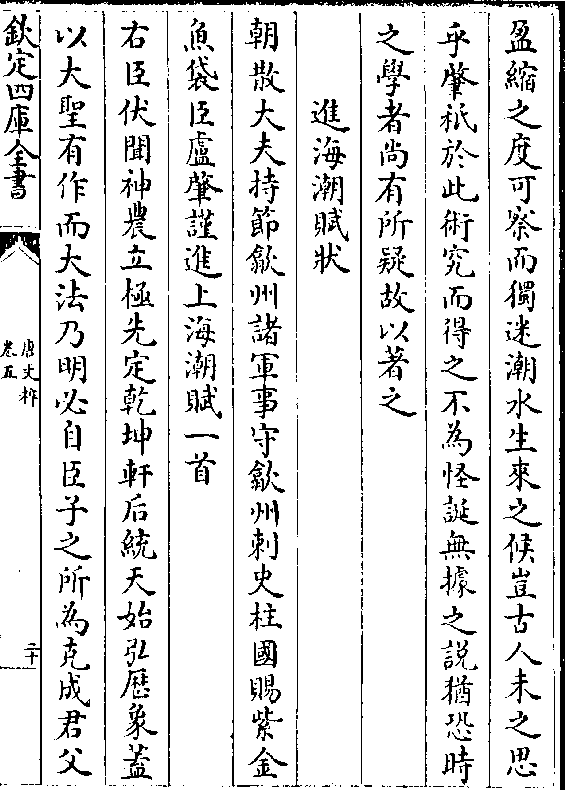 盈縮之度可察而獨迷潮水生來之候豈古人未之思
乎肇祇於此術究而得之不為怪誕無據之説猶恐時
之學者尚有所疑故以著之
進海潮賦狀
朝散大夫持節歙州諸軍事守歙州刺史柱國賜紫金
魚袋臣盧肇謹進上海潮賦一首
右臣伏聞神農立極先定乾坤軒后統天始弘厯象葢
以大聖有作而大法乃明必自臣子之所為克成君父
欽定四庫全書
唐文粹
卷五
二十